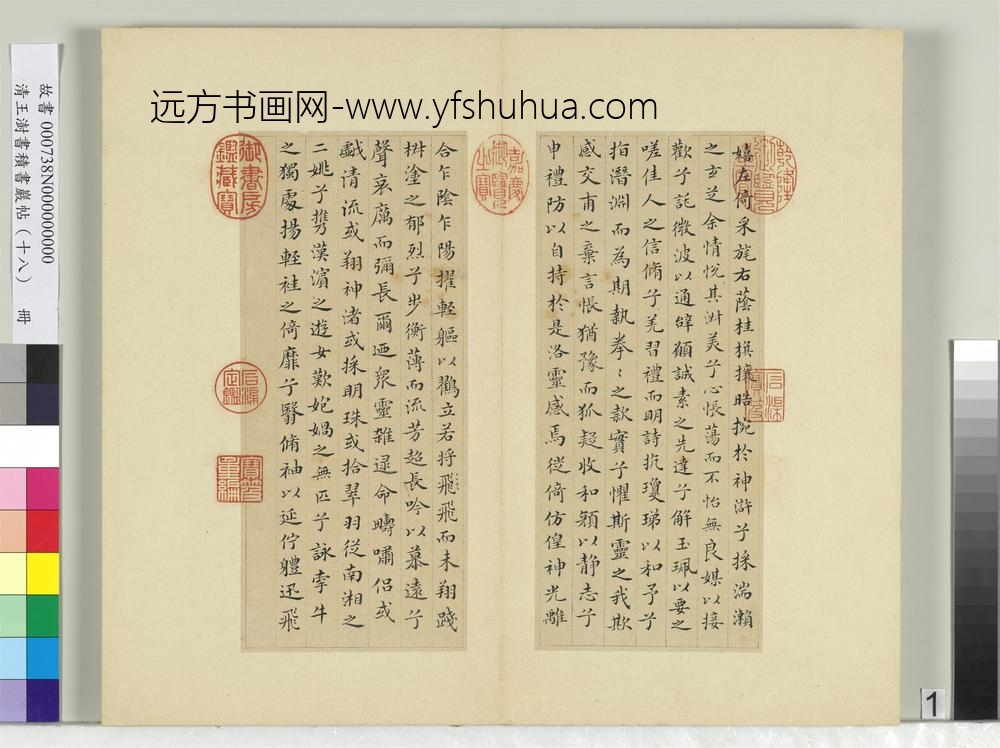 远方书画网-www.yfshuhua.com
故書 000738N000000000
清王澍書積書巖帖(十八) 冊
嬉左倚采旄右蔭桂旗攘皓捥於神滸兮採湍瀨
之玄芝余情悅其淑美兮心悵蕩而不怡無良媒以接
歡兮託微波以通辭願誠素之先達兮解玉珮以要之
嗟佳人之信脩兮羌習禮而明詩抗瓊珶以和予兮
指潛淵而為期執拳〻之款實兮懼斯靈之我欺
感交甫之棄言悵猶豫而狐疑收和顏以静志兮
申禮防以自持於是洛靈感焉從倚仿偟神光離
合乍陰乍陽擢輕軀以鶴立若將飛飛而未翔踐
椒塗之郁烈兮步衡薄而流芳超長吟以慕遠兮
聲哀厲而彌長爾迺衆靈雜遝命疇嘯侶或
戲清流或翔神渚或採明珠或拾翠羽從南湘之
二姚兮攜漢濱之遊女歎匏媧之無匹兮詠牽牛
之獨處揚輕袿之倚靡兮翳脩袖以延佇體迅飛
嘉慶御覽之寶
御書房鑑藏寶
石渠定鑑
寶笈重編
1